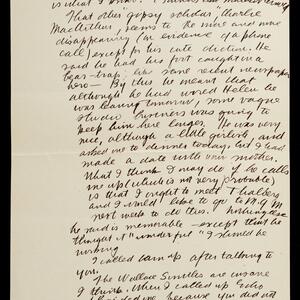 is what I
That other gypsy scholar, Charlie
MacArthur, seems to me more and more
disappearing (an evidence of a phone
call) except for his cute diction. He
said he had his foot caught in a
bear-trap, his some recent newspaper
here — By this he meant that
although he had wired Helen he
was leaving tomorrow, some vague
studio business was going to
keep him here longer. He was very
nice, although a little girlish, and
asked me to dinner today, but I had
made a date with our mother.
What I think I may do if he calls
me up (which is not very probable)
is that I ought to meet Thalberg
and I would like to go to M.G.M.
next week to do this. Nothing else
he said is memorable — except that he
thought it "wonderful" I should be
nursing
I called them up after talking to
you.
The Wallace Smiths are insane
I think. When I called up Echo
because you did not